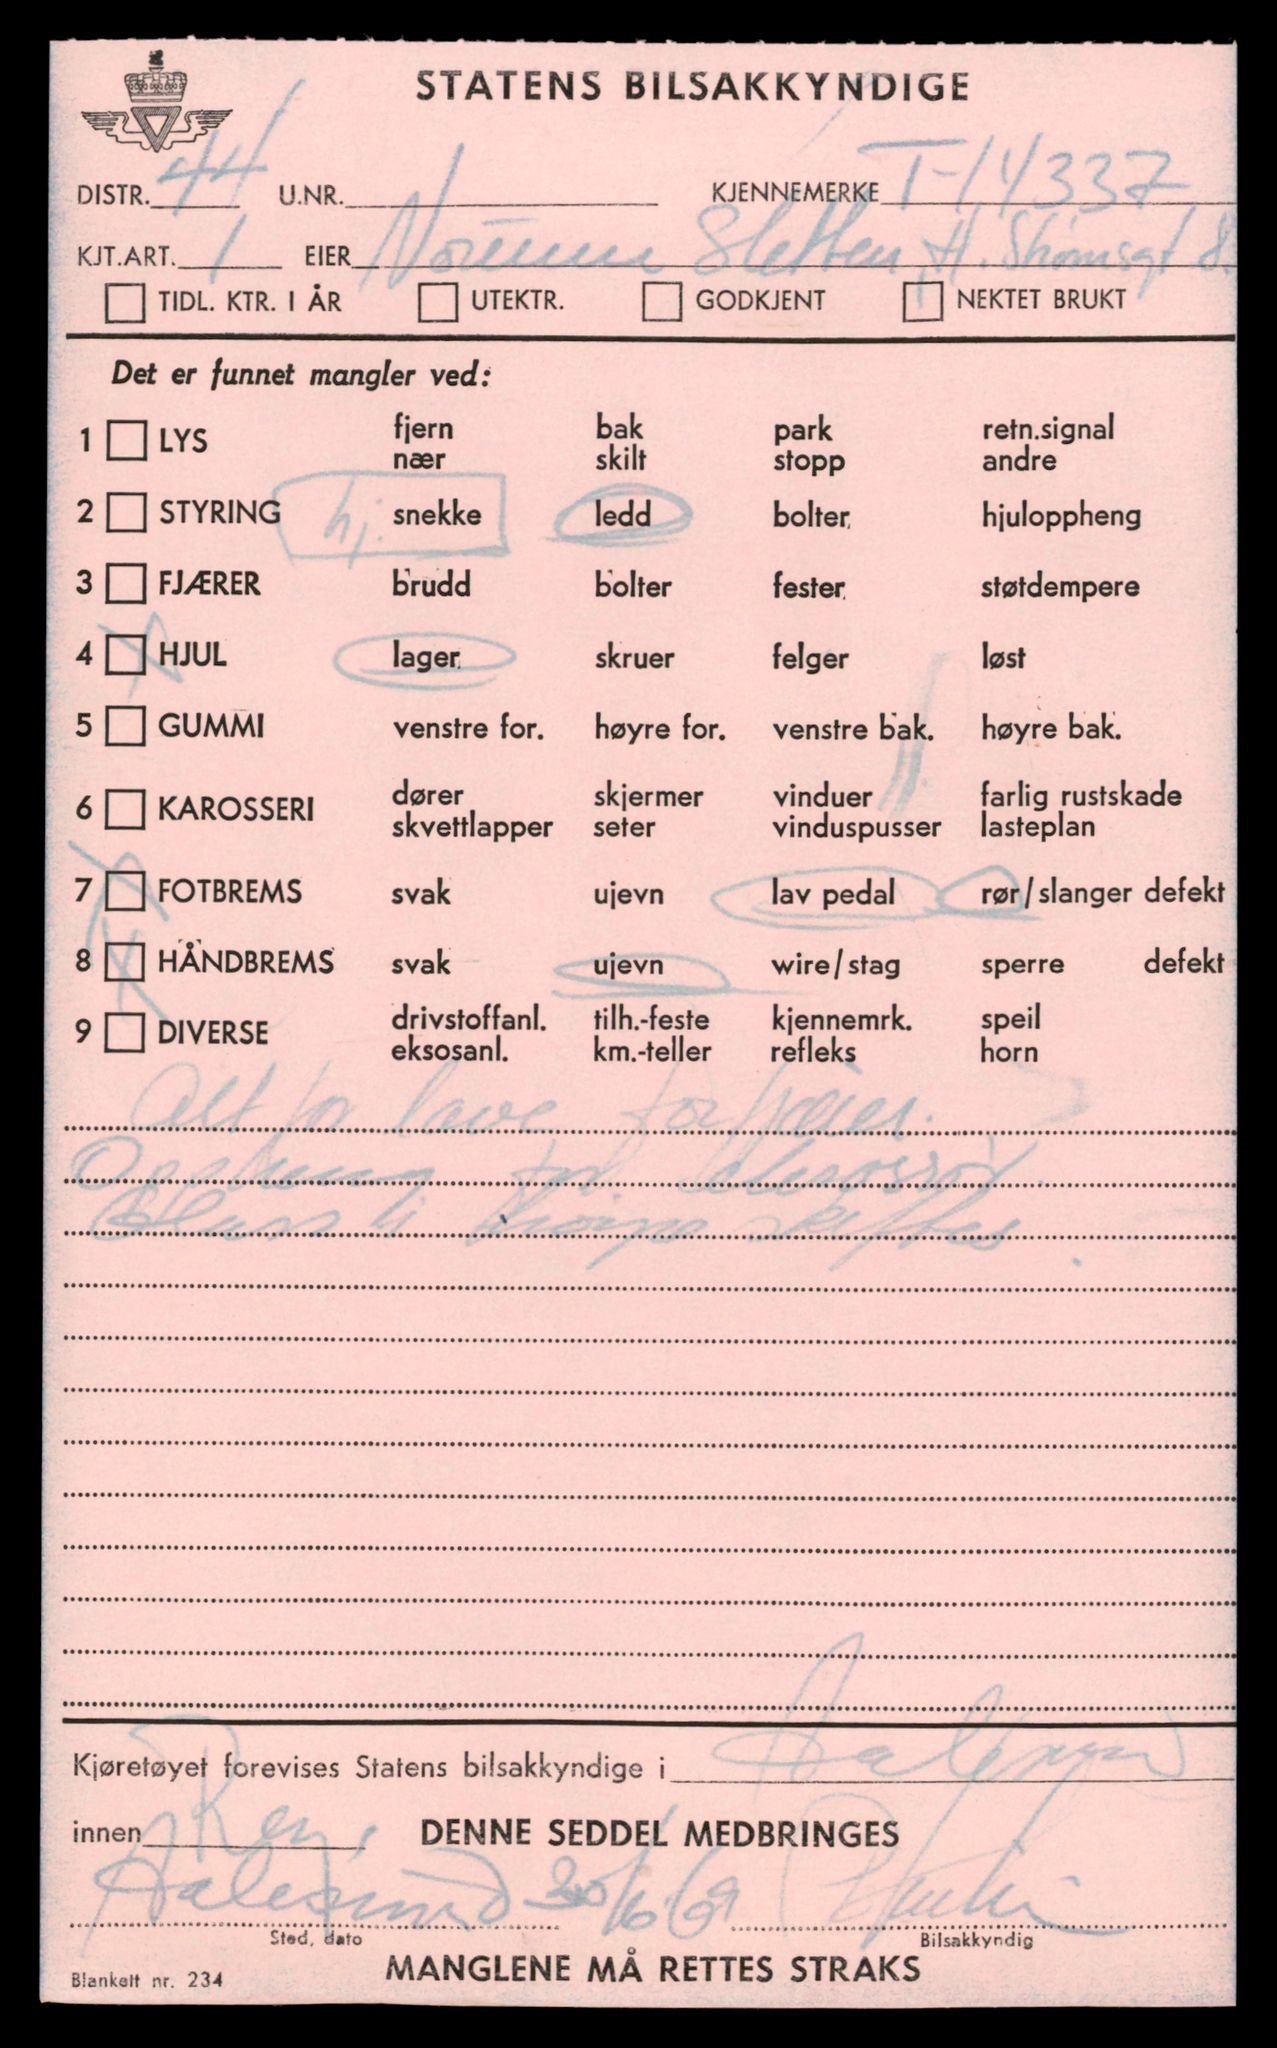 STATENS BILSAKKYNDIGE
DISTR. 44 U.NR. KJENNEMERKE T-14337
KJT.ART. 1 EIER Sletten, H. Strømsgt 8.
TIDL. KTR. I ÅR UTEKTR. GODKJENT NEKTET BRUKT
Det er funnet mangler ved:
1 LYS fjern bak park retn.signal
nær skilt stopp andre
2 STYRING hj. snekke ledd bolter hjuloppheng
3 FJÆRER brudd bolter fester støtdempere
4 HJUL lager skruer felger løst
5 GUMMI venstre for. høyre for. venstre bak. høyre bak.
6 KAROSSERI dører skjermer vinduer farlig rustskade
skvettlapper seter vinduspusser lasteplan
7 FOTBREMS svak ujevn lav pedal rør/slanger defekt
8 HÅNDBREMS svak ujevn wire/stag sperre defekt
9 DIVERSE drivstoffanl. tilh.-feste kjennemrk. speil
eksosanl. km.-teller refleks horn
Alt for lave forfjærer.
Oppheng for eksosrør.
skiftes.
Kjøretøyet forevises Statens bilsakkyndige i Aalesund
innen Rep. DENNE SEDDEL MEDBRINGES
Aalesund 30/6/69
Sted, dato Bilsakkyndig
Blankett nr. 234 MANGLENE MÅ RETTES STRAKS